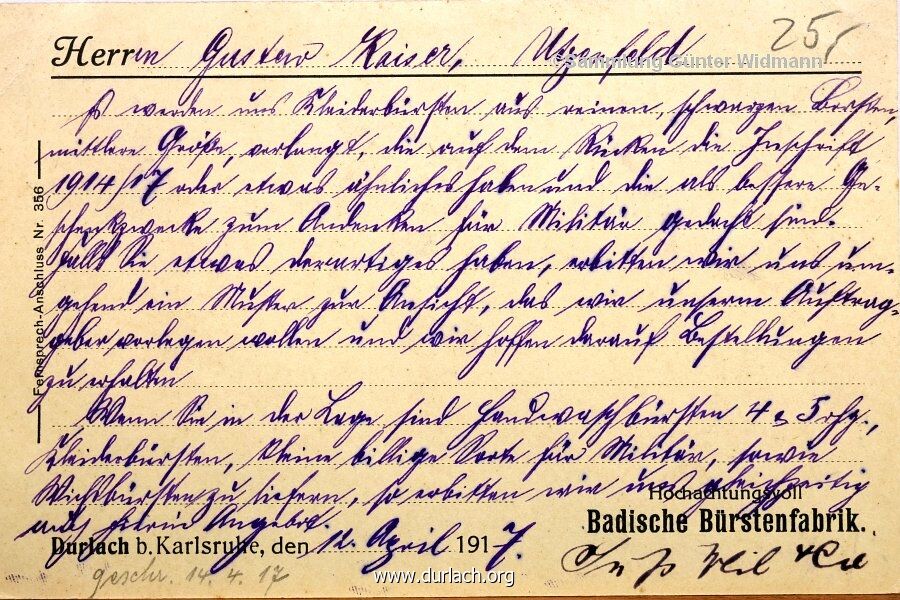 25,
Herrn Gustav Kaiser, Utzenfeld
©Sammlung Günter Widmann
Es werden uns Kleiderbürsten aus reinen, schwarzen Borsten,
mittlere Größe, verlangt, die auf dem Rücken die Inschrift
1914/17 oder etwas ähnliches haben und die als bessere Ge-
schenkzwecke zum Andenken für Militär gedacht sind.
Falls Sie etwas derartiges haben, erbitten wir uns um-
gehend ein Muster zur Ansicht, das wir unserm Auftrag-
geber vorlegen wollen und wir hoffen darauf Bestellungen
zu erhalten
Wenn Sie in der Lage sind Handwaschbürsten 4 & 5 rhg.,
Kleiderbürsten, kleine billige Sorte für Militär, sowie
Wichsbürsten zu liefern, so erbitten wir uns gleichzeitig
auch hierin Angebot.
Hochachtungsvoll
Badische Bürstenfabrik.
Durlach b. Karlsruhe, den 12. April 1917.
geschr. 14. 4. 17
www.durlach.org
Fernsprech-Anschluss Nr. 356